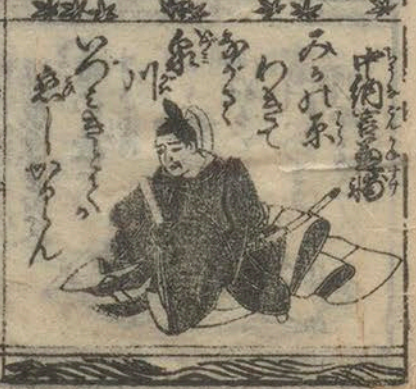 中納言兼輔
みかの原
わきて
ながるゝ
泉川
いづみきとてか
恋しかるらん